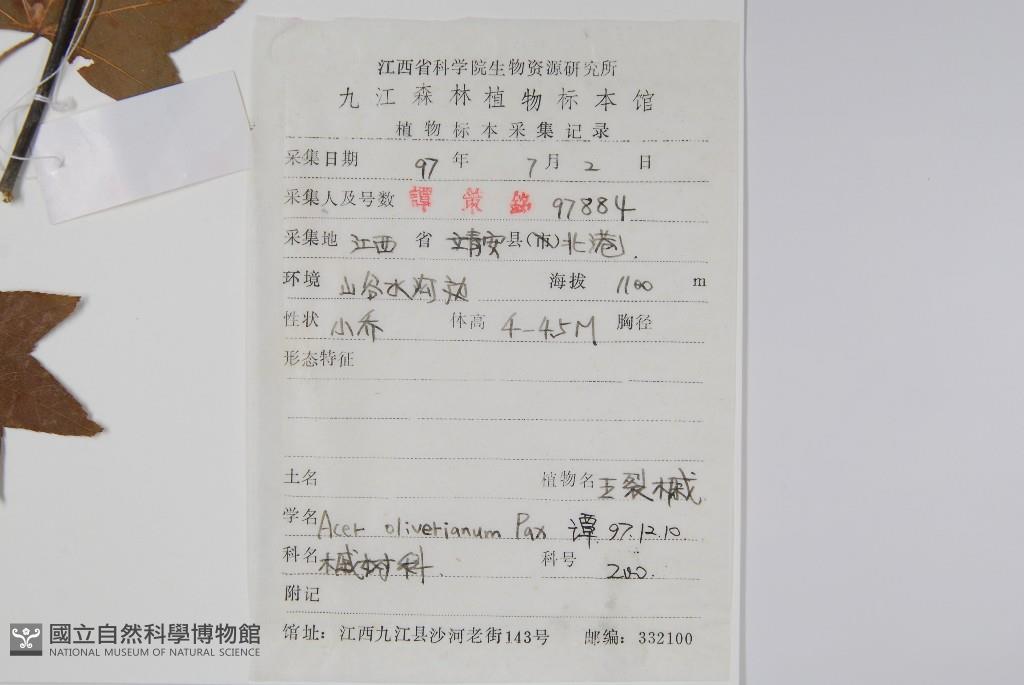 江西省科学院生物资源研究所
九江森林植物标本馆
植物标本采集记录
采集日期 97 年 7 月 2 日
采集人及号数 譚 97884
采集地 江西 省 靖安 县(市) 北港
环境 山谷水沟 海拔 1100 m
性状 小乔 体高 4-4.5M 胸径
形态特征
土名 植物名 五裂槭
学名 Acer oliverianum Pax 谭 97.12.10.
科名 槭树科 科号 200.
附记
馆址：江西九江县沙河老街143号 邮编：332100
國立自然科學博物館
NATIONAL MUSEUM OF NATURAL SCIENCE